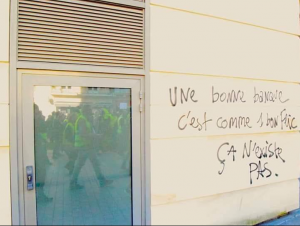 Une bonne banque
c'est comme 1 bon flic
Ça N'existe
PAS.